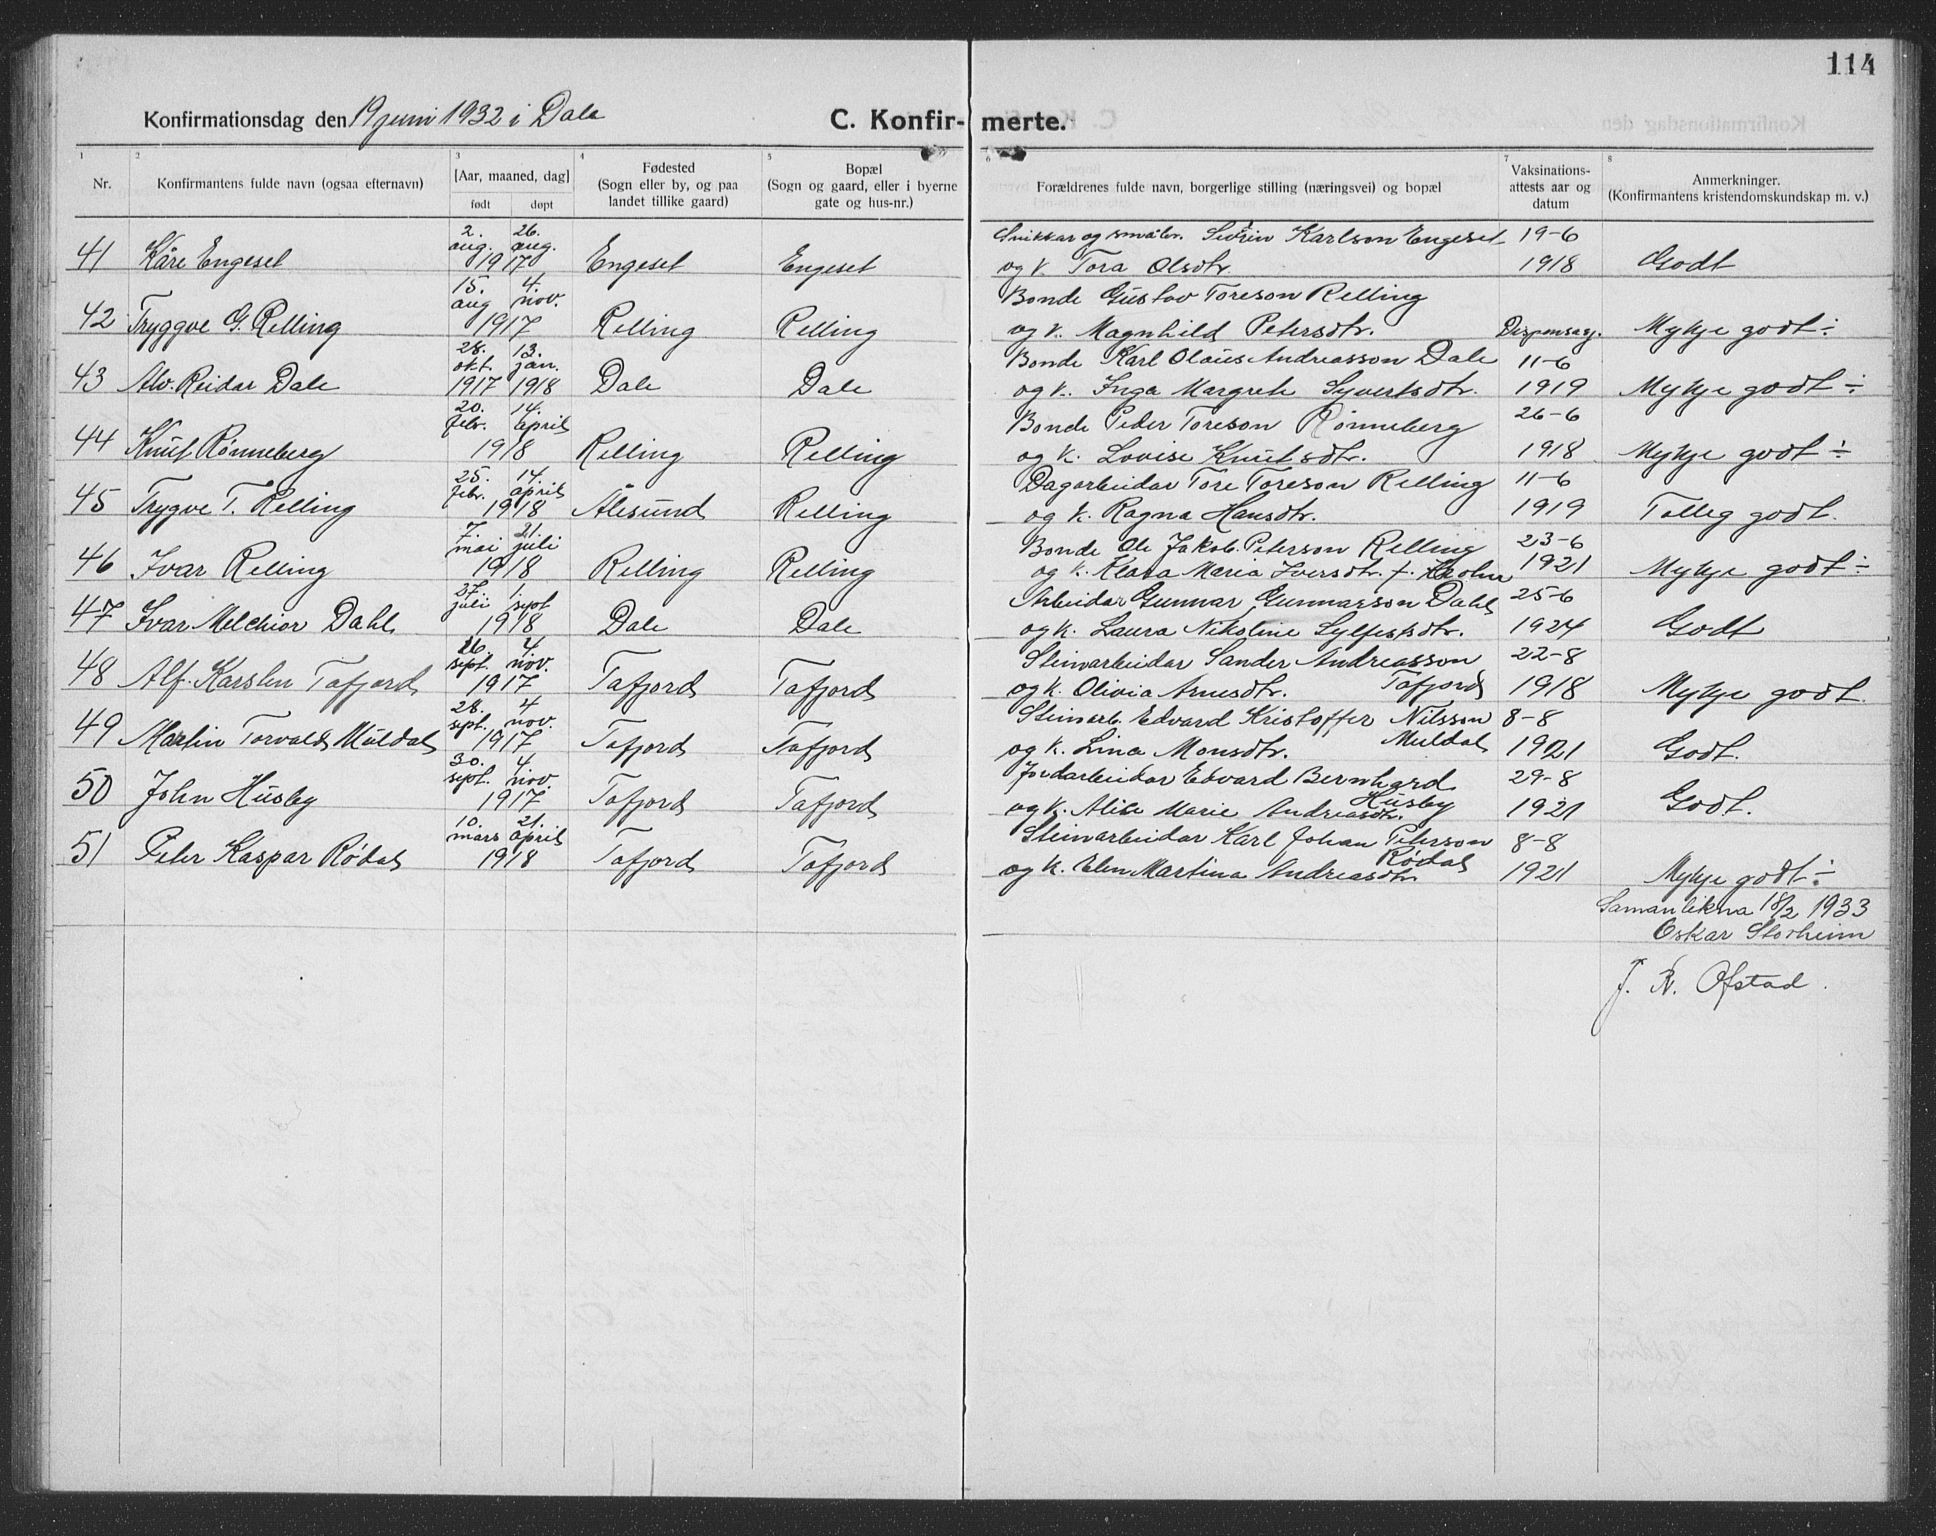 114
Konfirmationsdag den 19 juni 1932 i Dale C. Konfir- merte.
1 2 3 4 5 6 7 8
Nr. Konfirmantens fulde navn (ogsaa efternavn) [Aar, maaned, dag] født døpt Fødested (Sogn eller by, og paa landet tillike gaard) Bopæl (Sogn og gaard, eller i byerne gate og hus-nr.) Forældrenes fulde navn, borgerlige stilling (næringsvei) og bopæl Vaksinations- attests aar og datum Anmerkninger. (Konfirmantens kristendomskundskap m. v.)
2. aug. 26. aug. Snikkar og småbr. Karlson Engeset 19-6
41 Kåre Engeset 1917 Engeset Engeset og k. Tora Olsdtr. 1918 Godt
15. aug 4. nov. Bonde Gustav Toreson Relling
42 Tryggve G. Relling 1917 Relling Relling og k. Magnhild Petersdtr. Dispensasj. Mykje godt ÷
28. okt. 13. jan. Bonde Karl Olaus Andreasson Dale 11-6
43 Alv. Reidar Dale 1917 1918 Dale Dale og k. Inga Margrete Syvertsdtr. 1919 Mykje godt ÷
20. febr. 14. april Bonde Peder Toreson Rønneberg 26-6
44 Knut Rønneberg 1918 Relling Relling og k. Lovise Knutsdtr. 1918 Mykje godt ÷
25. febr. 14. april Dagarbeidar Tore Toreson Relling 11-6
45 Trygve T. Relling 1918 Ålesund Relling og k. Ragna Hansdtr. 1919 Tolleg godt.
7. mai 21. juli Bonde Ole Jakob Peterson Relling 23-6
46 Ivar Relling 1918 Relling Relling og k. Klara Maria Iversdtr. f. 1921 Mykje godt ÷
27. juli 1. sept Arbeidar Gunnar Gunnarson Dahl 25-6
47 Ivar Melchior Dahl 1918 Dale Dale og k. Laura Nikoline Sylfestsdtr. 1924 Godt
26. sept. 4. nov. Steinarbeidar Sander Andreasson 22-8
48 Alf. Karsten Tafjord 1917 Tafjord Tafjord og k. Olivia Arnesdtr. Tafjord 1918 Mykje godt.
28. sept. 4 nov. Steinarb. Edvard Kristoffer Nilsson 8-8
49 Martin Torvald Muldal 1917 Tafjord Tafjord og k. Lina Monsdtr. Muldal 1921 Godt.
30. sept. 4. nov. Jordarbeidar Edvard Bernhard 29-8
50 John Husby 1917 Tafjord Tafjord og k. Alise Marie Andreasdtr. Husby 1921 Godt.
10. mars 21. april Steinarbeidar Karl Johan Peterson 8-8
51 Peter Kaspar Rødal 1918 Tafjord Tafjord og k. Elen Martina Andreasdtr Rødal 1921 Mykje godt ÷
Samanlikna 18/2 1933
Oskar Storheim
J. R. Ofstad.